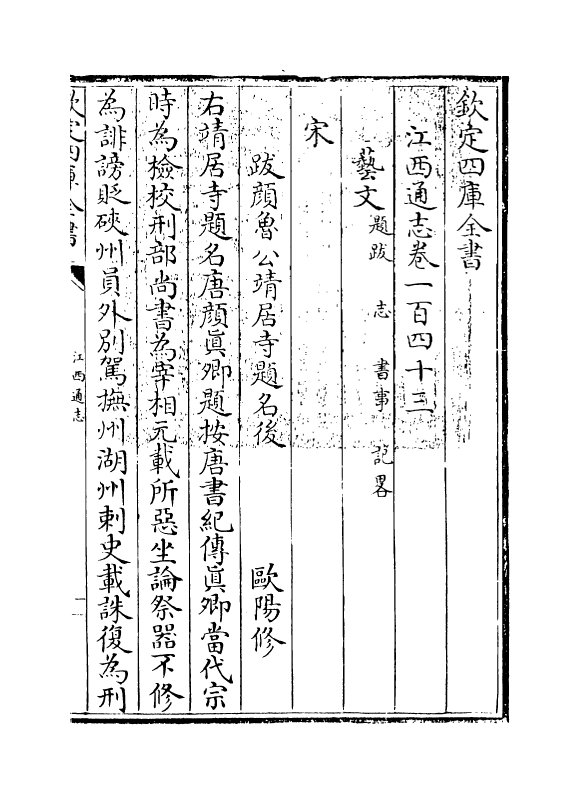 欽定四庫全書
江西通志卷一百四十三
藝文題跋 志 書事 記畧
宋
跋顔魯公靖居寺題名後 歐陽修
右靖居寺題名唐顔眞卿題按唐書紀傳眞卿當代宗
時為檢校刑部尚書為宰相元載所惡坐論祭器不修
為誹謗貶硤州員外別駕撫州湖州刺史載誅復為刑
欽定四庫全書
江西通志
一